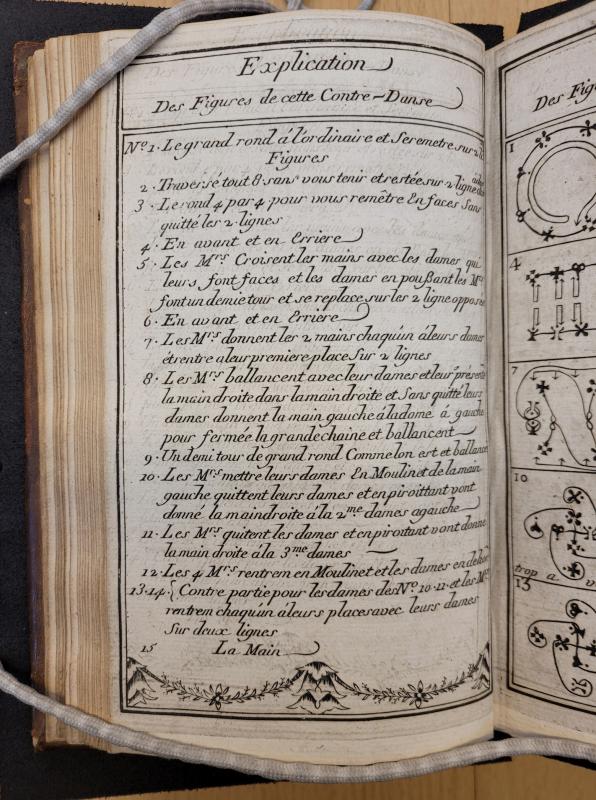 Explication
Des Figures de cette Contre-Danse
Nº 1. Le grand rond á l'ordinaire et Se remetre sur 2
Figures
2. Traversé tout 8 sans vous tenir et restée sur 2 ligne
3. Le rond 4 par 4 pour vous remêtre En faces Sans
quitté les 2 lignes
4. En avant et en Erriere
5. Les Mrs Croisent les mains avec les dames qui
leurs font faces et les dames en poußant les Mrs
font un demie tour et se replace sur les 2 ligne opposés
6. En avant et en Erriere
7. Les Mrs donnent les 2 mains chaqu'un á leurs dames
et rentre a leur premiere place Sur 2 lignes
8. Les Mrs ballancent avec leur dames et leurs presente
la main droite dans la main droite et Sans quitté leurs
dames donnent la main gauche á la dame á gauche
pour fermée la grande chaine et ballancent
9. Un demi tour de grand rond Comme lon est et ballance
10. Les Mrs mettre leurs dames En Moulinet de la main
gauche quittent leurs dames et en piroittant vont
donné la main droite á la 2me dames a gauche
11. Les Mrs quitent les dames et en piroitant vont donné
la main droite á la 3me dames
12. Les 4 Mrs rentrem en Moulinet et les dames en dehors
13.14. { Contre partie pour les dames des Nº 10.11. et les Mrs
rentrem chaqu'un á leurs places avec leurs dames
Sur deux lignes
15 La Main
Des Fig
1
4
7
10
trop a
13